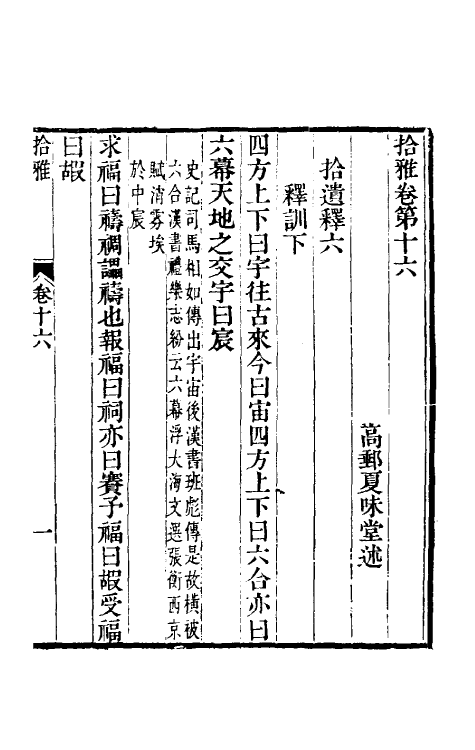 拾雅卷第十六
高郵夏味堂述
拾遺釋六
釋訓下
四方上下曰宇往古來今曰宙四方上下曰六合亦曰
六幕天地之交宇曰宸
史記司馬相如傳出宇宙後漢書班彪傳是故橫被
六合漢書禮樂志紛云六幕浮大海文選張衡西京
賦消雰埃
於中宸
求福曰禱禂讄禱也報福曰祠亦曰賽予福曰嘏受福
曰嘏
拾雅
卷十六
一